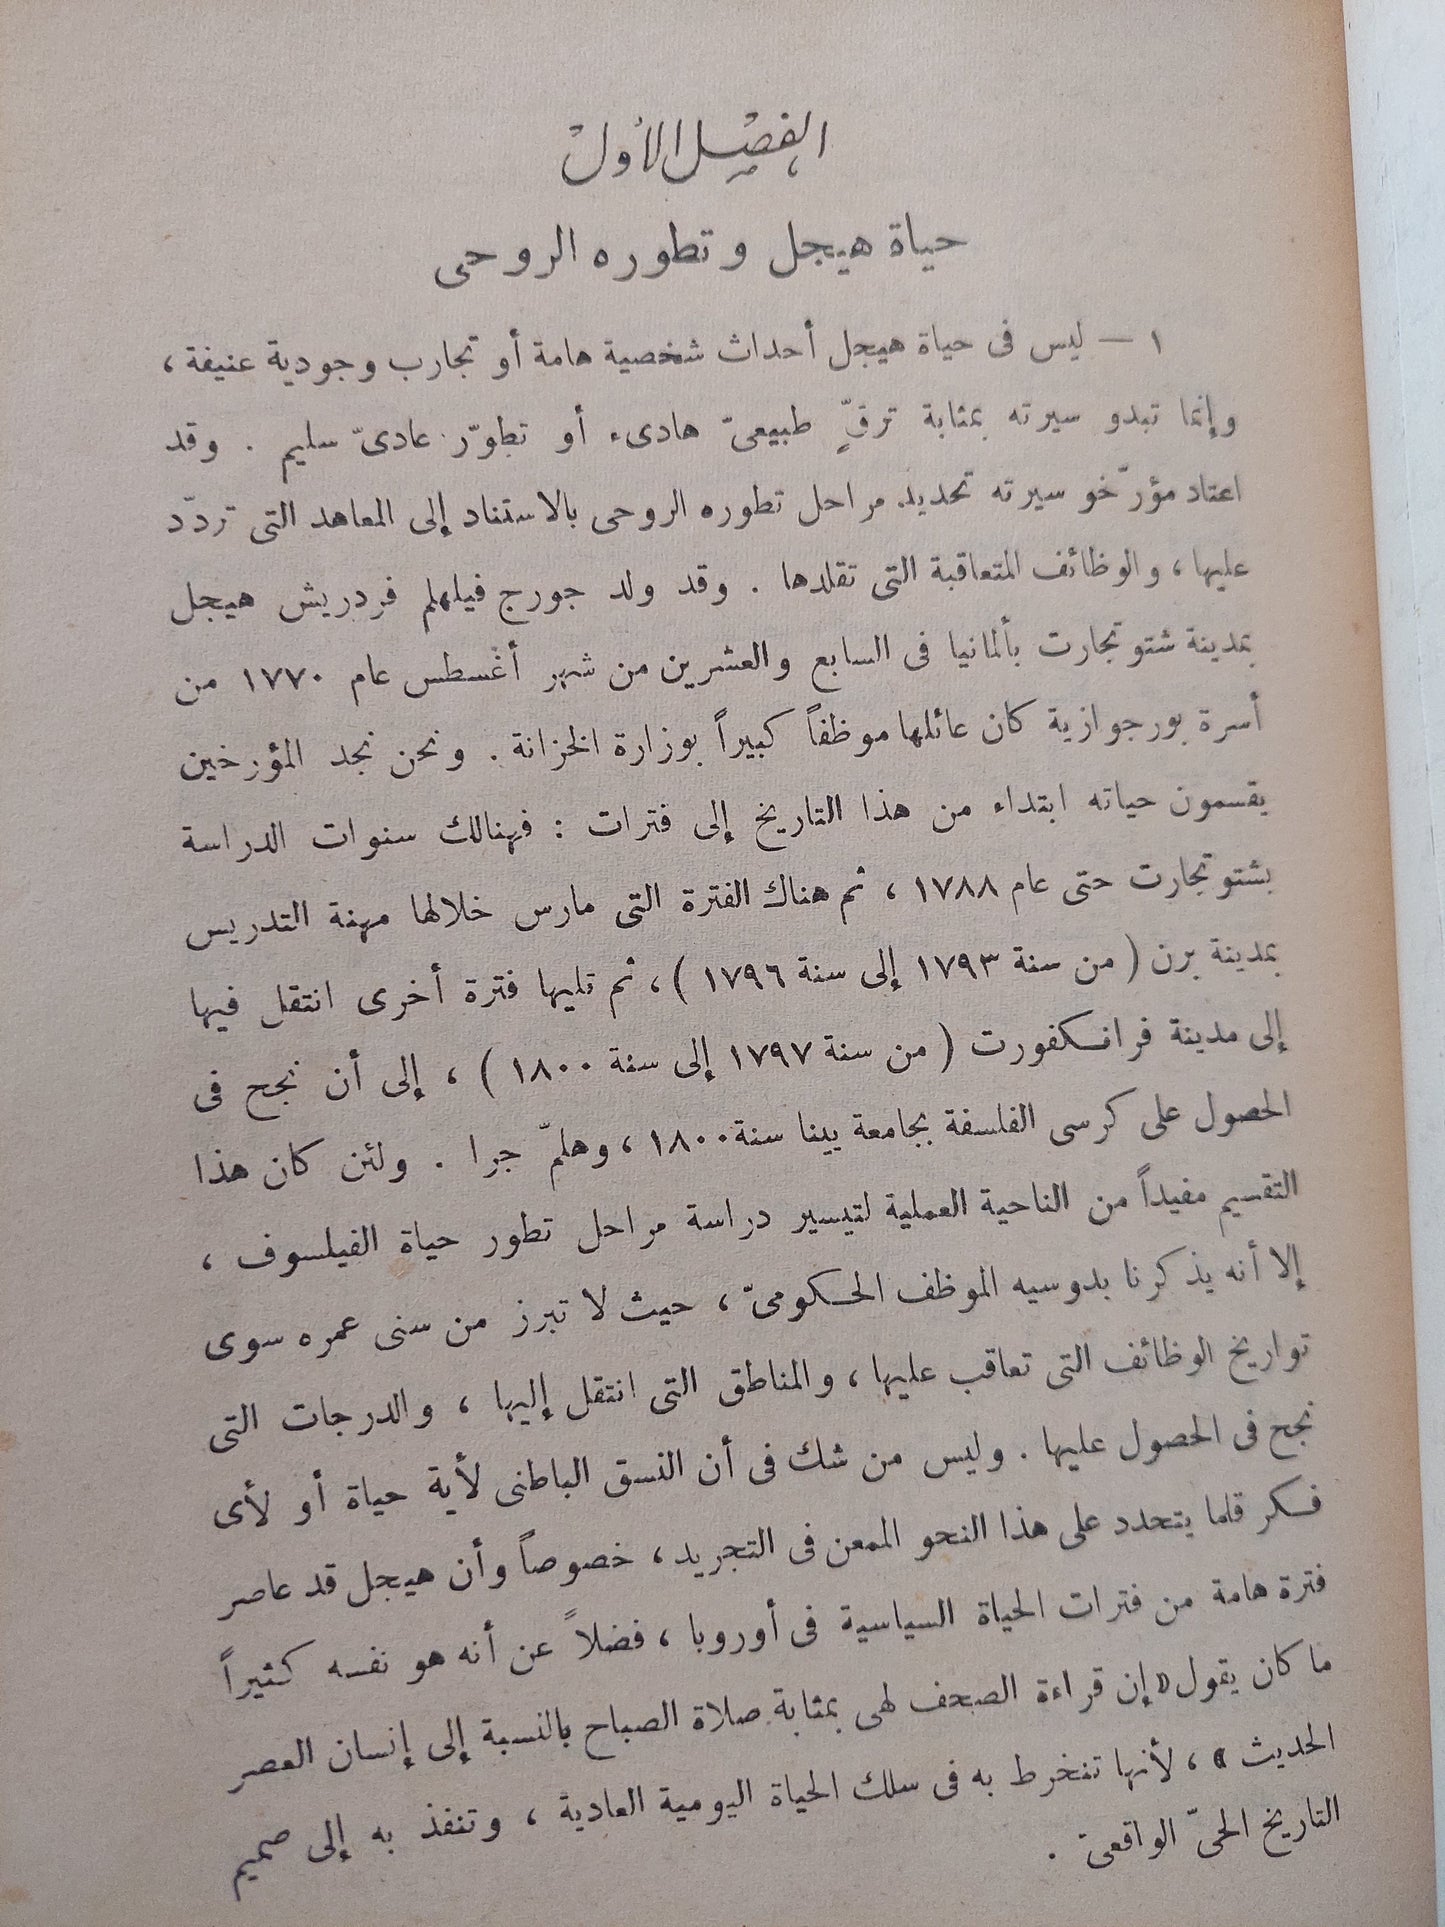 الفصل الأول
حياة هيجل وتطوره الروحى
١ — ليس فى حياة هيجل أحداث شخصية هامة أو تجارب وجودية عنيفة ،
وإنما تبدو سيرته بمثابة ترقٍّ طبيعىّ هادىء أو تطوّر عادىّ سليم . وقد
اعتاد مؤرّخو سيرته تحديد مراحل تطوره الروحى بالاستناد إلى المعاهد التى تردّد
عليها ، والوظائف المتعاقبة التى تقلدها . وقد ولد جورج فيلهلم فردريش هيجل
بمدينة شتوتجارت بألمانيا فى السابع والعشرين من شهر أغسطس عام ١٧٧٠ من
أسرة بورجوازية كان عائلها موظفاً كبيراً بوزارة الخزانة . ونحن نجد المؤرخين
يقسمون حياته ابتداء من هذا التاريخ إلى فترات : فهنالك سنوات الدراسة
بشتوتجارت حتى عام ١٧٨٨ ، ثم هناك الفترة التى مارس خلالها مهنة التدريس
بمدينة برن ( من سنة ١٧٩٣ إلى سنة ١٧٩٦ ) ، ثم تليها فترة أخرى انتقل فيها
إلى مدينة فرانكفورت ( من سنة ١٧٩٧ إلى سنة ١٨٠٠ ) ، إلى أن نجح فى
الحصول على كرسى الفلسفة بجامعة يينا سنة ١٨٠٠ ، وهلمّ جرا . ولئن كان هذا
التقسيم مفيداً من الناحية العملية لتيسير دراسة مراحل تطور حياة الفيلسوف ،
إلا أنه يذكرنا بدوسيه الموظف الحكومىّ ، حيث لا تبرز من سنى عمره سوى
تواريخ الوظائف التى تعاقب عليها ، والمناطق التى انتقل إليها ، والدرجات التى
نجح فى الحصول عليها . وليس من شك فى أن النسق الباطنى لأية حياة أو لأى
فكر قلما يتحدد على هذا النحو الممعن فى التجريد ، خصوصاً وأن هيجل قد عاصر
فترة هامة من فترات الحياة السياسية فى أوروبا ، فضلاً عن أنه هو نفسه كثيراً
ما كان يقول « إن قراءة الصحف لهى بمثابة صلاة الصباح بالنسبة إلى إنسان العصر
الحديث » ، لأنها تنخرط به فى سلك الحياة اليومية العادية ، وتنفذ به إلى صميم
التاريخ الحىّ الواقعىّ .